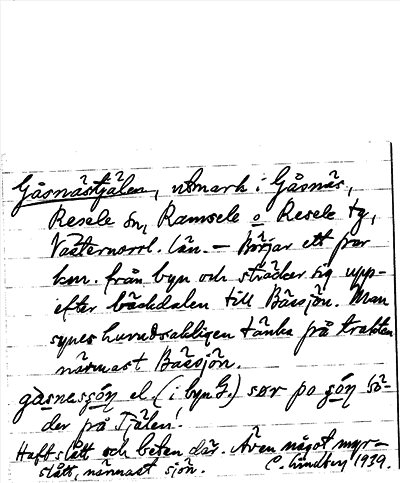 Gåsnästjälen, utmark i Gåsnäs,
Resele sn, Ramsele o Resele tg,
Västernorrl. län. – Börjar ett par
km. från byn och sträcker sig upp-
efter bäckdalen till Bässjön. Man
synes huvudsakligen tänka på trakten
närmast Bässjön.
el. (i byn G.) sør po
der på Tjälen!
Haft slått och beten där. Även något myr-
slått, närmast sjön. C. Lindberg 1939.